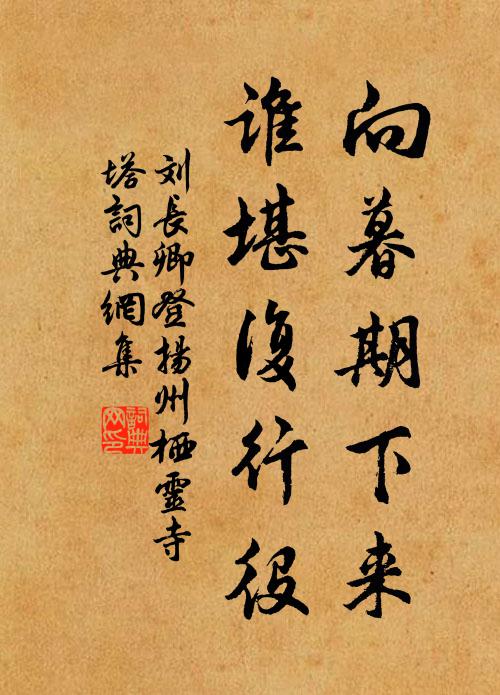 向暮期下来
谁堪復行役
刘長卿登揚州栖靈寺
塔詞典網集
詞典网印